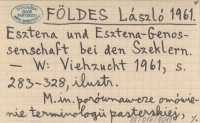 FÖLDES László 1961.
Esztena und Esztena-Genos-
senschaft bei den Szeklern.
— W: Viehzucht 1961, s.
283-328, ilustr.
M.in. porównawcze omówie-
nie terminologii pasterskiej,